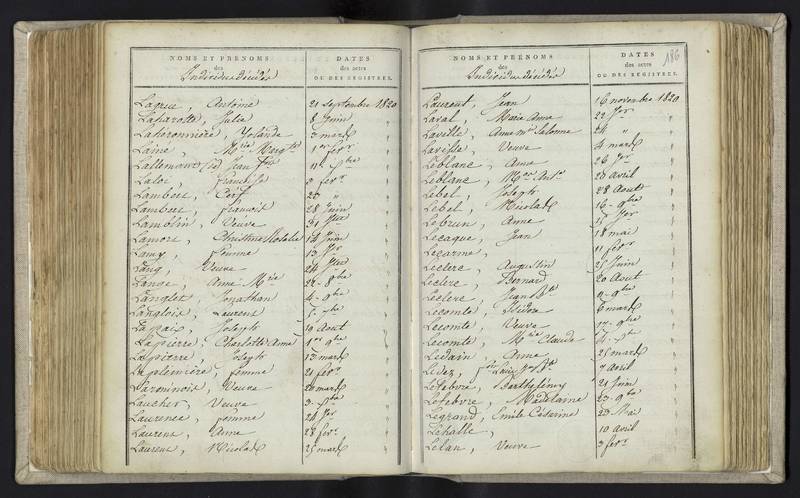 NOMS ET PRÉNOMS
des
Individus décédés
DATES
des actes
OU DES REGISTRES.
Antoine 21 septembre 1820
Laparotte, Julie 8 Juin "
Laboronnière, Yolande 3 mars "
Lainé, 1er fevr "
Lallemand Jean "
Laloi, Françoise 9 fevr "
Lambert, Cerf 20 " "
Lambert, François 28 Juin "
Lamblin, Veuve 31 "
Lamort, Christine Rosalie 14 Juin "
Lamy, femme "
Lang, Veuve 24 "
Lange, Anne Mrie 22 - 8bre "
Langlet, Jonathan 4 - 9bre "
Langlois, Laurent "
Lapaix, Joseph 19 Aout "
Lapierre, Charlotte Anne 1er 9bre "
Lapierre, Joseph 13 mars "
femme 21 fevr "
Veuve 20 mars "
Laucher, Veuve "
Laurence, femme 24 "
Laurent, Anne 28 fevr "
Laurent, Nicolas 25 mars "
186
NOMS ET PRÉNOMS
des
Individus décédés
DATES
des actes
OU DES REGISTRES.
Laurent, Jean 16 novembre 1820
Laval, Marie Anne 22 "
Laville, Anne Salomé 24 " "
Veuve 4 mars "
Leblanc, Anne 26 "
Leblanc, 26 avril "
Lebel, Joseph 28 Aout "
Lebel, Nicolas 16 - 9bre "
Lebrun, Anne "
Lecaque, Jean 18 mai "
Lecarme, 11 fevr "
Leclerc, Augustin 25 Juin "
Leclerc, Bernard 20 Aout "
Leclerc, Jean Bte "
Lecomte, Isidore 6 mars "
Lecomte, Veuve 17 - 9bre "
Lecomte, Mrie Claude "
Ledain, Anne 25 mars "
Ledez, 7 avril "
Lefebvre, Barthélemy 21 Juin "
Lefebvre, Madelaine 23 - 9bre "
Legrand, 23 Mai "
Lehalle, 10 avril "
Lelan, Veuve 3 fevr "